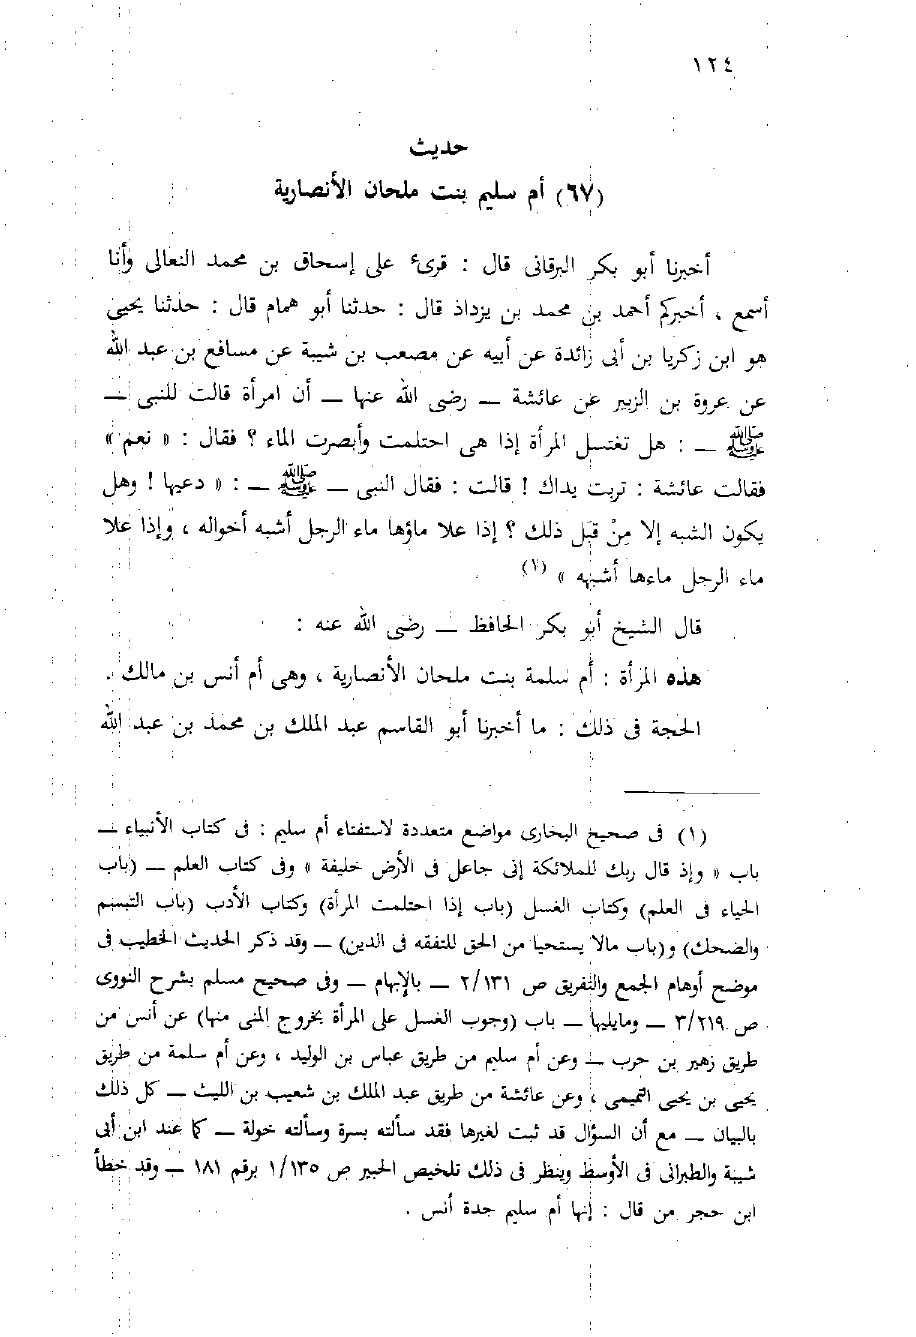 ١٢٤
حديث
(٦٧) أم سليم بنت ملحان الأنصارية
أخبرنا أبو بكر البرقانى قال : قرىء على إسحاق بن محمد النعالى وأنا
أسمع ، أخبركم أحمد بن محمد بن يزداذ قال : حدثنا أبو همام قال : حدثنا يحيى
هو ابن زكريا بن أبى زائدة عن أبيه عن مصعب بن شيبة عن مسافع بن عبد الله
عن عروة بن الزبير عن عائشة ــ رضى الله عنها ــ أن امرأة قالت للنبى ــ
ﷺ ــ : هل تغتسل المرأة إذا هى احتلمت وأبصرت الماء ؟ فقال : « نعم »
فقالت عائشة : تربت يداك ! قالت : فقال النبى ــ ﷺ ــ : « دعيها ! وهل
يكون الشبه إلا مِنْ قِبَل ذلك ؟ إذا علا ماؤها ماء الرجل أشبه أخواله ، وإذا علا
ماء الرجل ماءها أشبهه » (١)
قال الشيخ أبو بكر الحافظ ــ رضى الله عنه :
هذه المرأة : أم سلمة بنت ملحان الأنصارية ، وهى أم أنس بن مالك .
الحجة فى ذلك : ما أخبرنا أبو القاسم عبد الملك بن محمد بن عبد الله
(١) فى صحيح البخارى مواضع متعددة لاستفتاء أم سليم : فى كتاب الأنبياء ــ
باب « وإذ قال ربك للملائكة إنى جاعل فى الأرض خليفة » وفى كتاب العلم ــ (باب
الحياء فى العلم) وكتاب الغسل (باب إذا احتلمت المرأة) وكتاب الأدب (باب التبسم
والضحك) و(باب مالا يستحيا من الحق للتفقه فى الدين) ــ وقد ذكر الحديث الخطيب فى
موضح أوهام الجمع والتفريق ص ٢/١٣١ ــ بالإبهام ــ وفى صحيح مسلم بشرح النووى
ص ٣/٢١٩ ــ ومايليها ــ باب (وجوب الغسل على المرأة بخروج المنى منها) عن أنس من
طريق زهير بن حرب ــ وعن أم سليم من طريق عباس بن الوليد ، وعن أم سلمة من طريق
يحيى بن يحيى التميمى ، وعن عائشة من طريق عبد الملك بن شعيب بن الليث ــ كل ذلك
بالبيان ــ مع أن السؤال قد ثبت لغيرها فقد سألته بسرة وسألته خولة ــ كما عند ابن أبى
شيبة والطبرانى فى الأوسط وينظر فى ذلك تلخيص الحبير ص ١/١٣٥ برقم ١٨١ ــ وقد خطأ
ابن حجر من قال : إنها أم سليم جدة أنس .